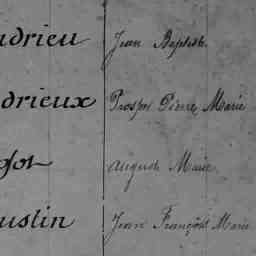 udrieu Jean Baptiste
drieux Prosper Pierre Marie
Auguste Marie
ustin Jean François Marie